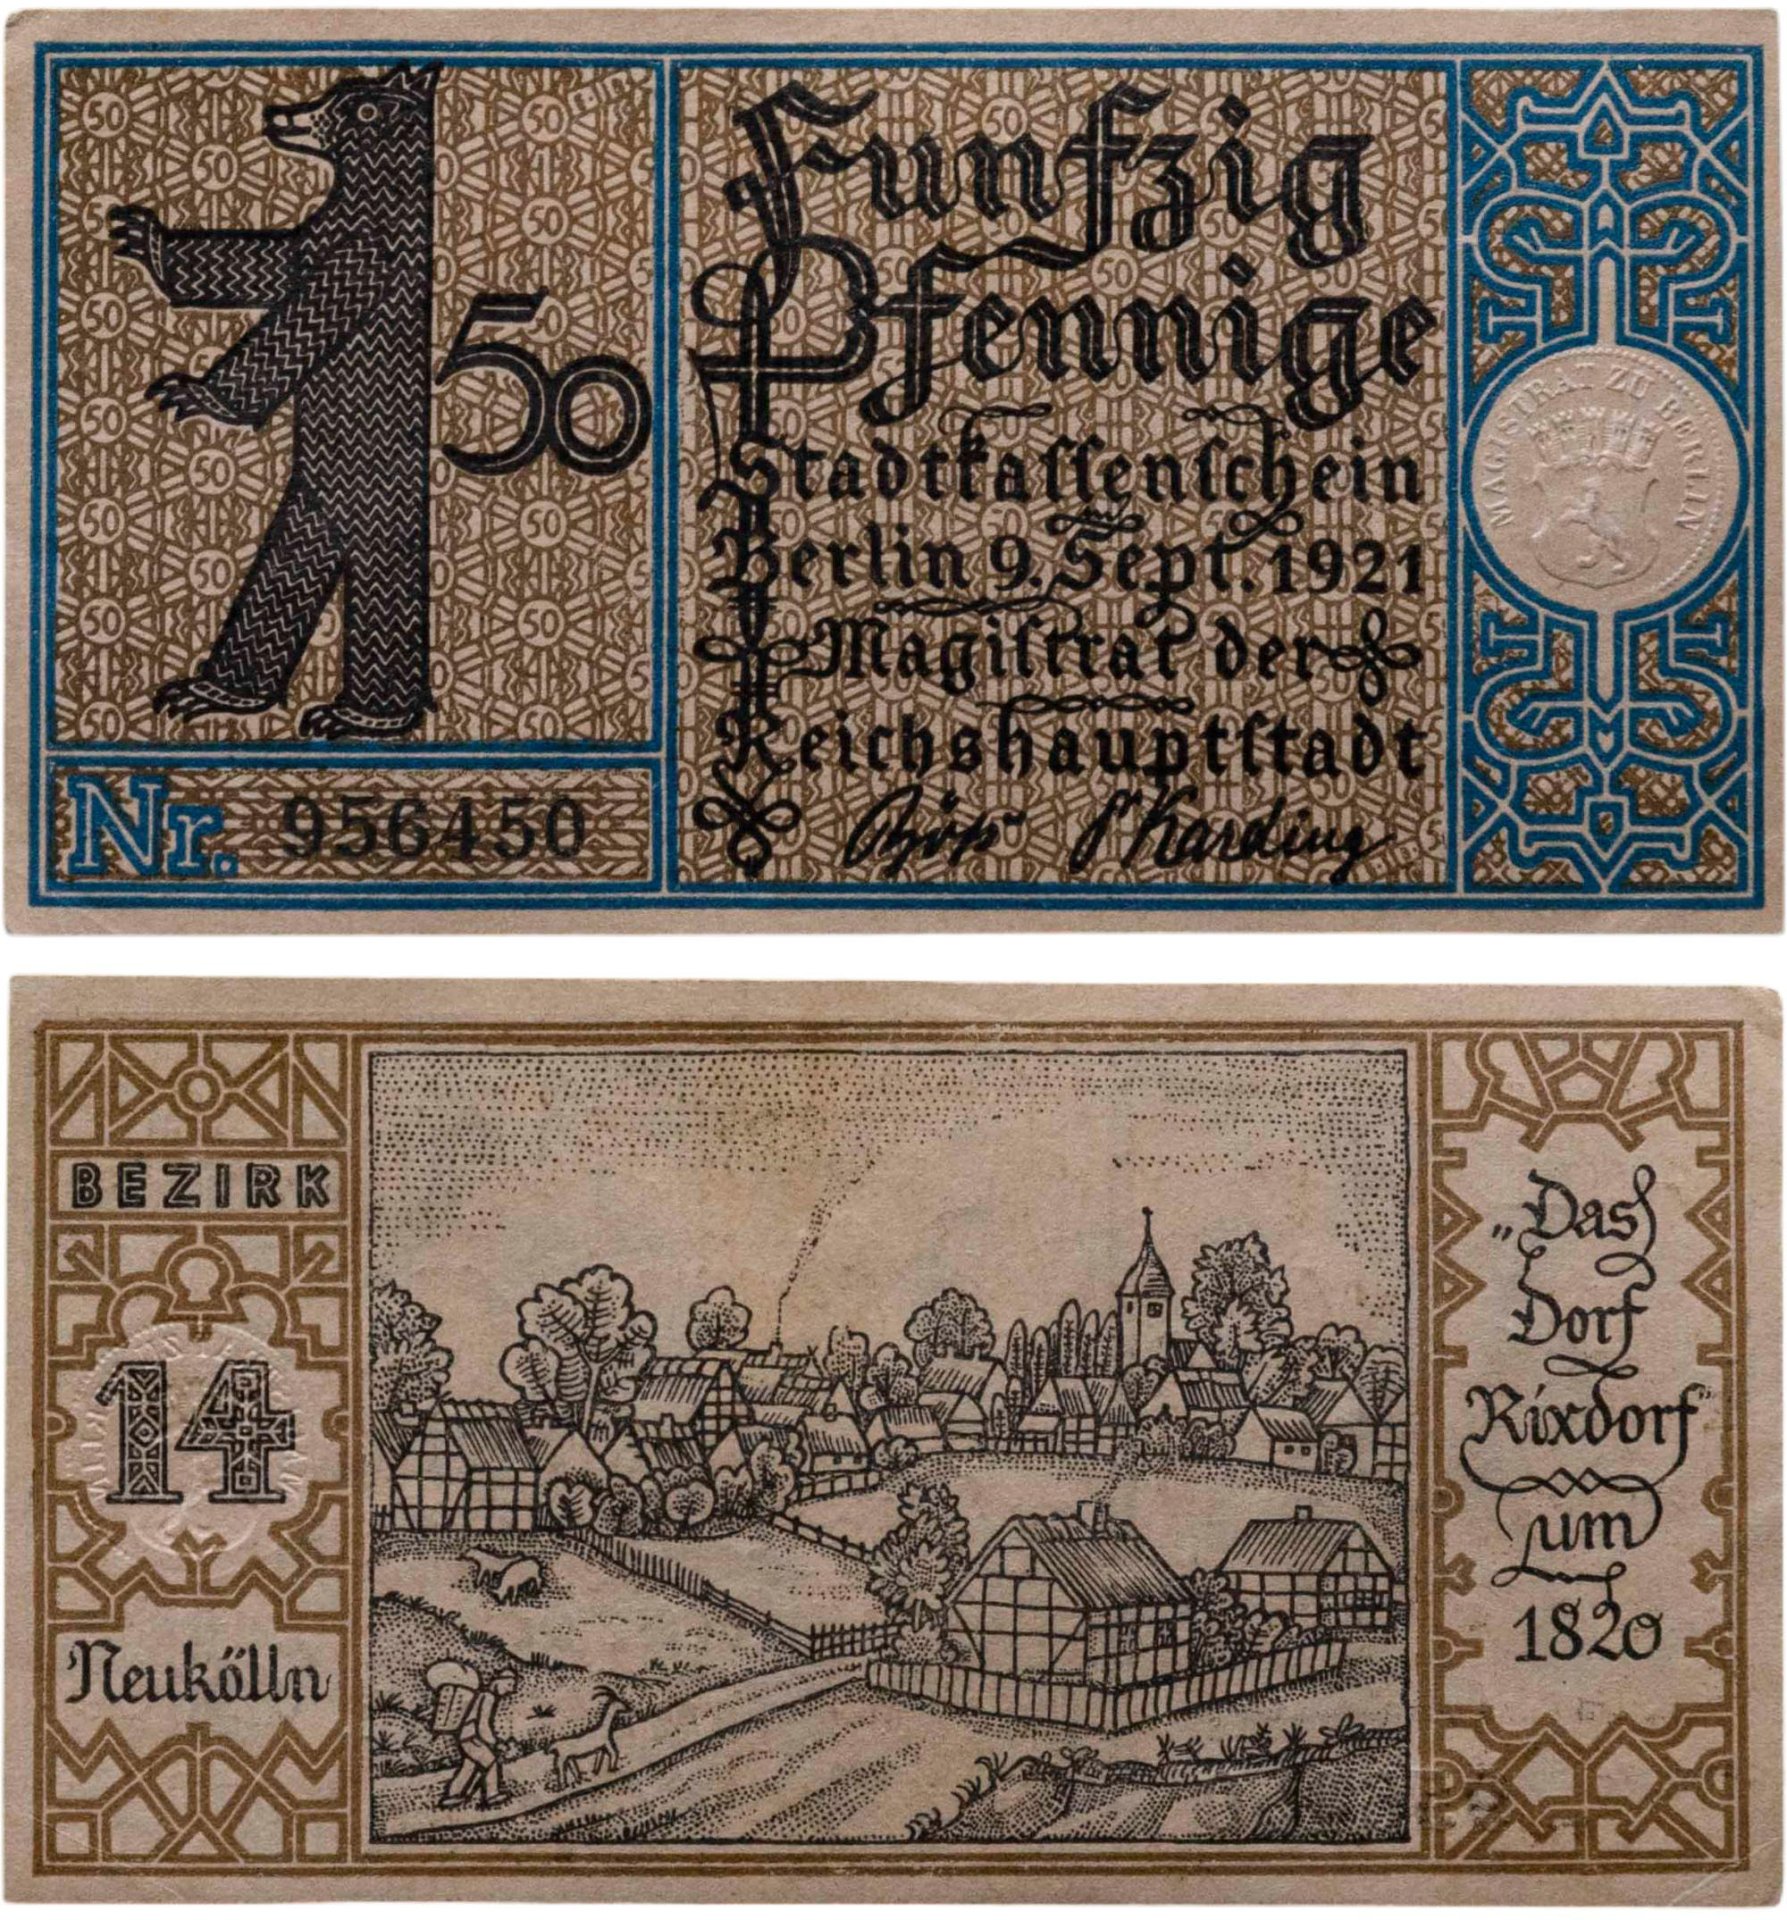 50
Fünfzig
Pfennige
Stadtkaſſenſchein
Berlin 9. Sept. 1921
Magiſtrat der
Reichshauptſtadt
Böß Karding
Nr. 956450
MAGISTRAT ZU BERLIN
BEZIRK
14
Neukölln
„Das
Dorf
Rixdorf"
um
1820